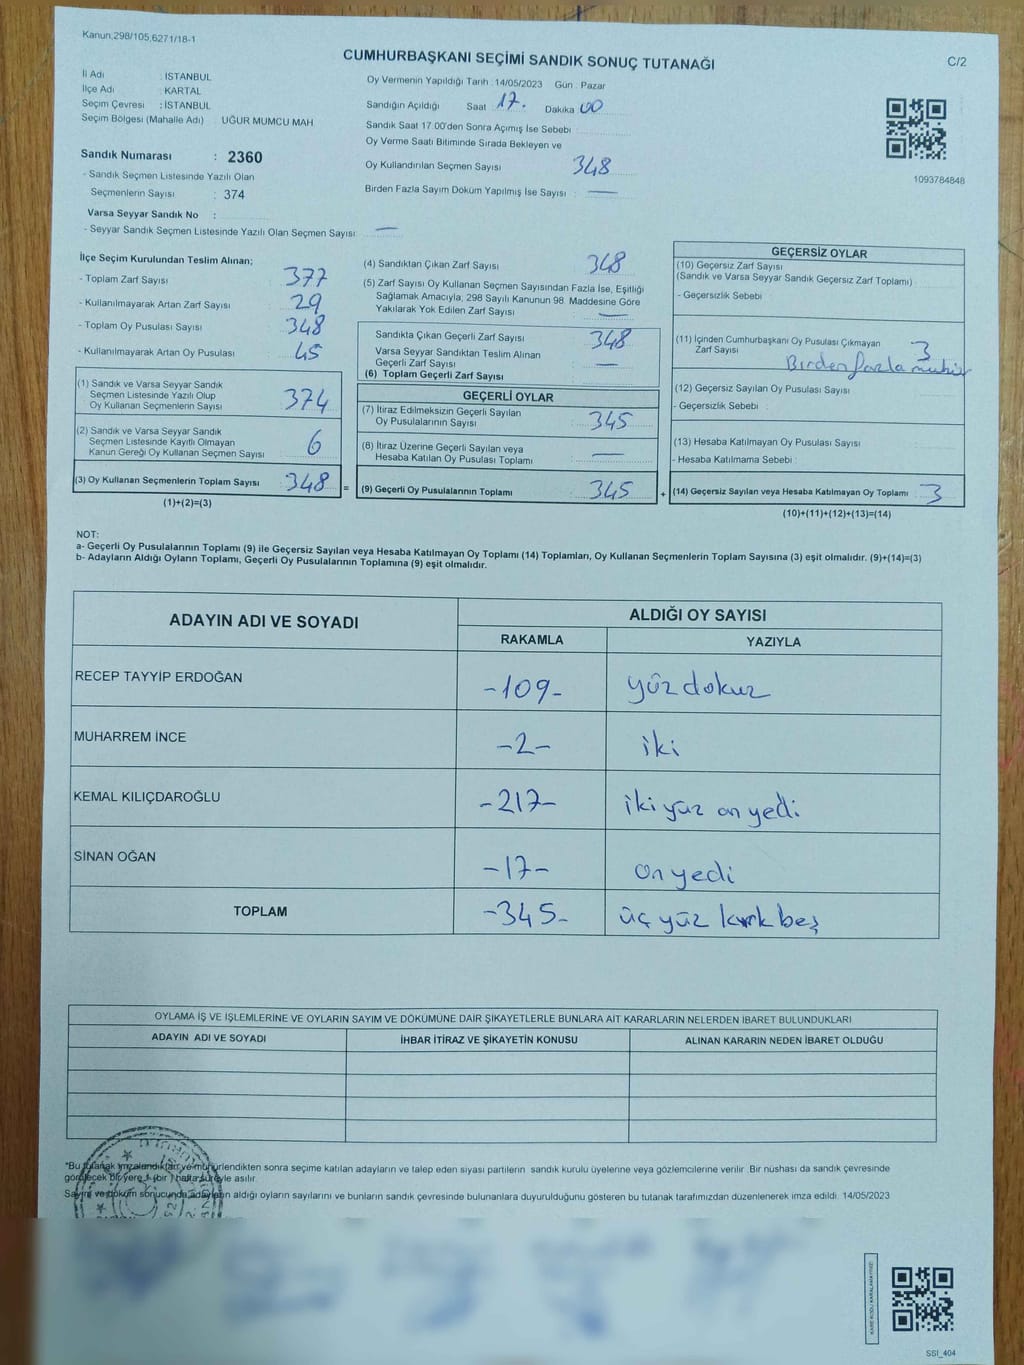 Kanun,298/105,6271/18-1
CUMHURBAŞKANI SEÇİMİ SANDIK SONUÇ TUTANAĞI
C/2
İl Adı : İSTANBUL
İlçe Adı : KARTAL
Seçim Çevresi : İSTANBUL
Seçim Bölgesi (Mahalle Adı) : UĞUR MUMCU MAH
Sandık Numarası : 2360
- Sandık Seçmen Listesinde Yazılı Olan
Seçmenlerin Sayısı : 374
Varsa Seyyar Sandık No :
- Seyyar Sandık Seçmen Listesinde Yazılı Olan Seçmen Sayısı: —
Oy Vermenin Yapıldığı Tarih : 14/05/2023 Gün : Pazar
Sandığın Açıldığı Saat 17. Dakika 00
Sandık Saat 17.00'den Sonra Açımış İse Sebebi :
Oy Verme Saati Bitiminde Sırada Bekleyen ve
Oy Kullandırılan Seçmen Sayısı 348
Birden Fazla Sayım Döküm Yapılmış İse Sayısı : —
1093784848
İlçe Seçim Kurulundan Teslim Alınan;
- Toplam Zarf Sayısı : 377
- Kullanılmayarak Artan Zarf Sayısı : 29
- Toplam Oy Pusulası Sayısı : 348
- Kullanılmayarak Artan Oy Pusulası : 45
(1) Sandık ve Varsa Seyyar Sandık
Seçmen Listesinde Yazılı Olup
Oy Kullanan Seçmenlerin Sayısı : 374
(2) Sandık ve Varsa Seyyar Sandık
Seçmen Listesinde Kayıtlı Olmayan
Kanun Gereği Oy Kullanan Seçmen Sayısı : 6
(3) Oy Kullanan Seçmenlerin Toplam Sayısı : 348 =
(1)+(2)=(3)
(4) Sandıktan Çıkan Zarf Sayısı : 348
(5) Zarf Sayısı Oy Kullanan Seçmen Sayısından Fazla İse, Eşitliği
Sağlamak Amacıyla, 298 Sayılı Kanunun 98. Maddesine Göre
Yakılarak Yok Edilen Zarf Sayısı : —
Sandıkta Çıkan Geçerli Zarf Sayısı : 348
Varsa Seyyar Sandıktan Teslim Alınan
Geçerli Zarf Sayısı : —
(6) Toplam Geçerli Zarf Sayısı :
GEÇERLİ OYLAR
(7) İtiraz Edilmeksizin Geçerli Sayılan
Oy Pusulalarının Sayısı : 345
(8) İtiraz Üzerine Geçerli Sayılan veya
Hesaba Katılan Oy Pusulası Toplamı : —
(9) Geçerli Oy Pusulalarının Toplamı : 345 +
GEÇERSİZ OYLAR
(10) Geçersiz Zarf Sayısı
(Sandık ve Varsa Seyyar Sandık Geçersiz Zarf Toplamı) :
- Geçersizlik Sebebi :
(11) İçinden Cumhurbaşkanı Oy Pusulası Çıkmayan
Zarf Sayısı : 3
Birden fazla mühür
(12) Geçersiz Sayılan Oy Pusulası Sayısı :
- Geçersizlik Sebebi :
(13) Hesaba Katılmayan Oy Pusulası Sayısı :
- Hesaba Katılmama Sebebi :
(14) Geçersiz Sayılan veya Hesaba Katılmayan Oy Toplamı : 3
(10)+(11)+(12)+(13)=(14)
NOT:
a- Geçerli Oy Pusulalarının Toplamı (9) ile Geçersiz Sayılan veya Hesaba Katılmayan Oy Toplamı (14) Toplamları, Oy Kullanan Seçmenlerin Toplam Sayısına (3) eşit olmalıdır. (9)+(14)=(3)
b- Adayların Aldığı Oyların Toplamı, Geçerli Oy Pusulalarının Toplamına (9) eşit olmalıdır.
ADAYIN ADI VE SOYADI
ALDIĞI OY SAYISI
RAKAMLA YAZIYLA
RECEP TAYYİP ERDOĞAN -109- yüz dokuz
MUHARREM İNCE -2- iki
KEMAL KILIÇDAROĞLU -217- iki yüz on yedi
SİNAN OĞAN -17- on yedi
TOPLAM -345- üç yüz kırk beş
OYLAMA İŞ VE İŞLEMLERİNE VE OYLARIN SAYIM VE DÖKÜMÜNE DAİR ŞİKAYETLERLE BUNLARA AİT KARARLARIN NELERDEN İBARET BULUNDUKLARI
ADAYIN ADI VE SOYADI İHBAR İTİRAZ VE ŞİKAYETİN KONUSU ALINAN KARARIN NEDEN İBARET OLDUĞU
*Bu tutanak imzalandıktan ve mühürlendikten sonra seçime katılan adayların ve talep eden siyasi partilerin sandık kurulu üyelerine veya gözlemcilerine verilir .Bir nüshası da sandık çevresinde
görülecek bir yere 1 (bir ) hafta süreyle asılır.
Sayım ve döküm sonucunda adayların aldığı oyların sayılarını ve bunların sandık çevresinde bulunanlara duyurulduğunu gösteren bu tutanak tarafımızdan düzenlenerek imza edildi. 14/05/2023
KARE KODU KARALAMAYINIZ!
SSI_404